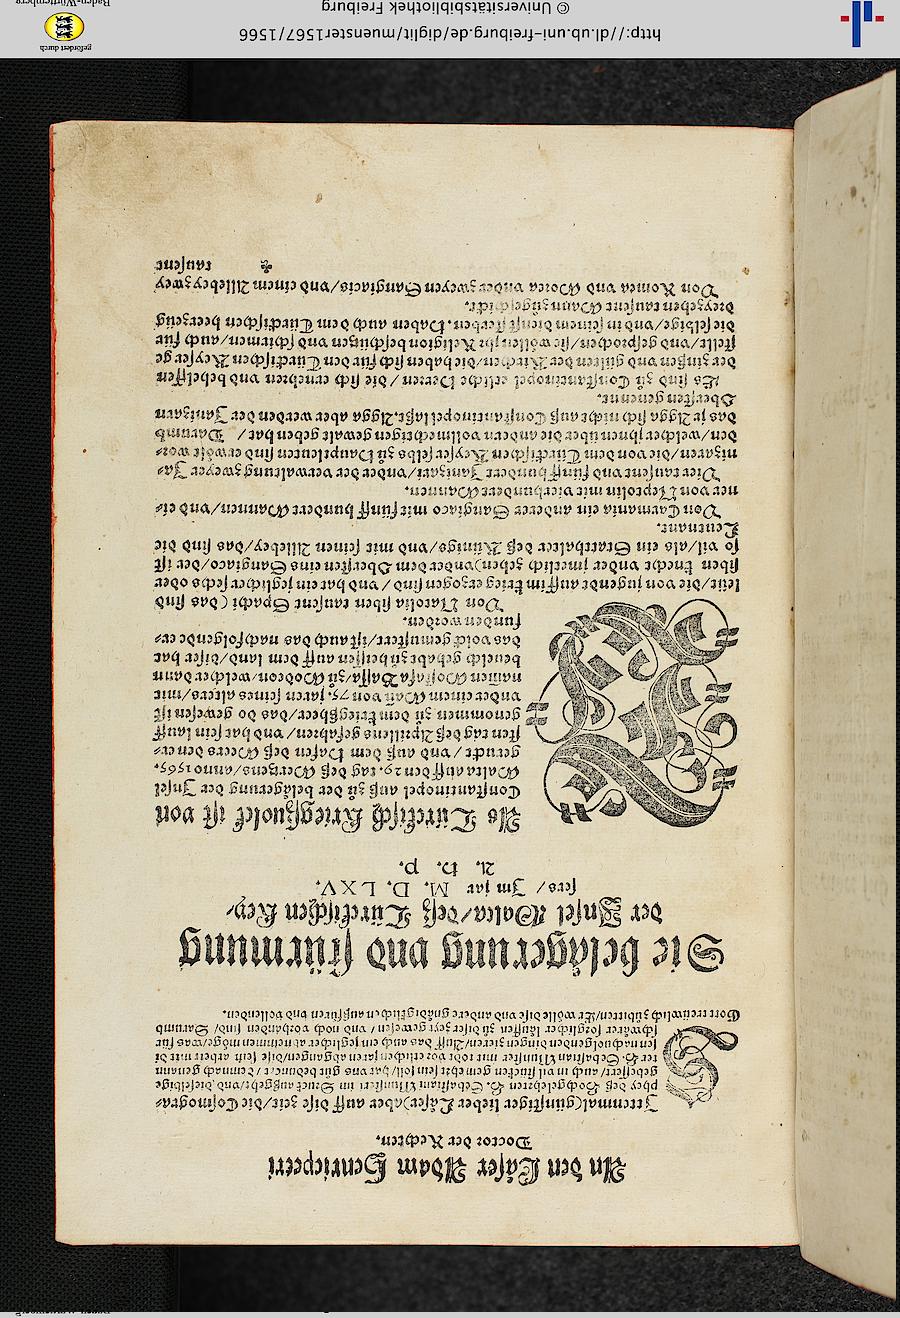 An den Läser Adam Henricpetri
Doctor der Rechten.
Jetenmal(günstiger lieber Läser)aber auff dise zeit/die Cosmogra⸗
phey deß Hochgelehrten H. Sebastian Münsters im Truck außgeht/vnd dieselbige
gebessert/ auch in vil stucken gemehrt sein soll/ hat vns gůt beduncet/ demnach gemein
ter H. Sebastian Münster mit todt vor etlichen jaren abgangen/dise sein arbeit mit di
sen nachuolgenden dingen zieren/Auff das auch ein jeglicher abnemmen möge/was für
schwärer sorglicher läuffen zů diser zeyt gewesen / vnd noch vorhanden sind/ Darumb
Gott trewlich zůbitten/Er wölle dise vnd andere gnädiglichen außfüren vnd vollenden.
Die belägerung vnd stürmung
der Insel Malta/deß Türckischen Key⸗
sers / Im jar M. D. LXV.
A. H. P.
Als Türckisch Kriegßuolck ist von
Constantinopel auß zů der belägerung der Insel
Malta auff den 29. tag deß Mertzens/anno 1565.
geruckt / vnd auß dem Hafen deß Meers den er⸗
sten tag deß Aprillens gefahren/ vnd hat sein lauff
genommen zů dem kriegßheer/das do gewesen ist
vnder einem Man von 75. jaren seines alters/mit
nammen Mostafa Bassa/zů Modon/welcher dann
beuelch gehabt zů besitzen auff dem land/diser hat
das volck gemustert/ist auch das nachfolgende er⸗
funden worden.
Von Natolia siben tausent Spachi (das sind
leut/die von jugendt auff im krieg erzogen sind / vnd hat ein jeglicher sechs oder
siben knecht vnder jm/etlich zehen)vnder dem Obersten eins Sangiaco/der ist
so vil/als ein Statthalter deß Künigs/vnd mit seinen Allebey/das sind die
Leutenant.
Von Carmania ein anderer Sangiaco mit fünff hundert Mannen/vnd ei⸗
ner von Neptolin mit vierhundert Mannen.
Vier tausent vnd fünff hundert Janizari/vnder der verwaltung zweyer Ja⸗
nizaren/die von dem Türckischen Keyser selbs zů Hauptleuten sind erwölt wor⸗
den/welcher jhnen über die andern vollmechtigen gewalt geben hat/ Darumb
das jr Agga sich nicht auß Constantinopel laßt. Agga aber werden der Janizarn
Obersten genennt.
Es sind zů Constantinopel etliche Herren / die sich ernehren vnd behelffen
der zinsen vnd gülten der Kirchen/die haben sich für den Türckischen Keyser ge
stellt/vnd gesprochen/sie wöllen jhr Religion beschützen vnd schirmen/auch für
die selbige/vnd in seinem dienst sterben. Haben auch dem Türckischen heerzeug
dreyzehen tausent Mann zůgeschickt.
Von Romea vnd Morea vnder zweyen Sangiacis/vnd einem Allebey zwey
tausent
http://dl.ub.uni-freiburg.de/diglit/muenster1567/1566
© Universitätsbibliothek Freiburg
gefördert durch
Baden-Württemberg